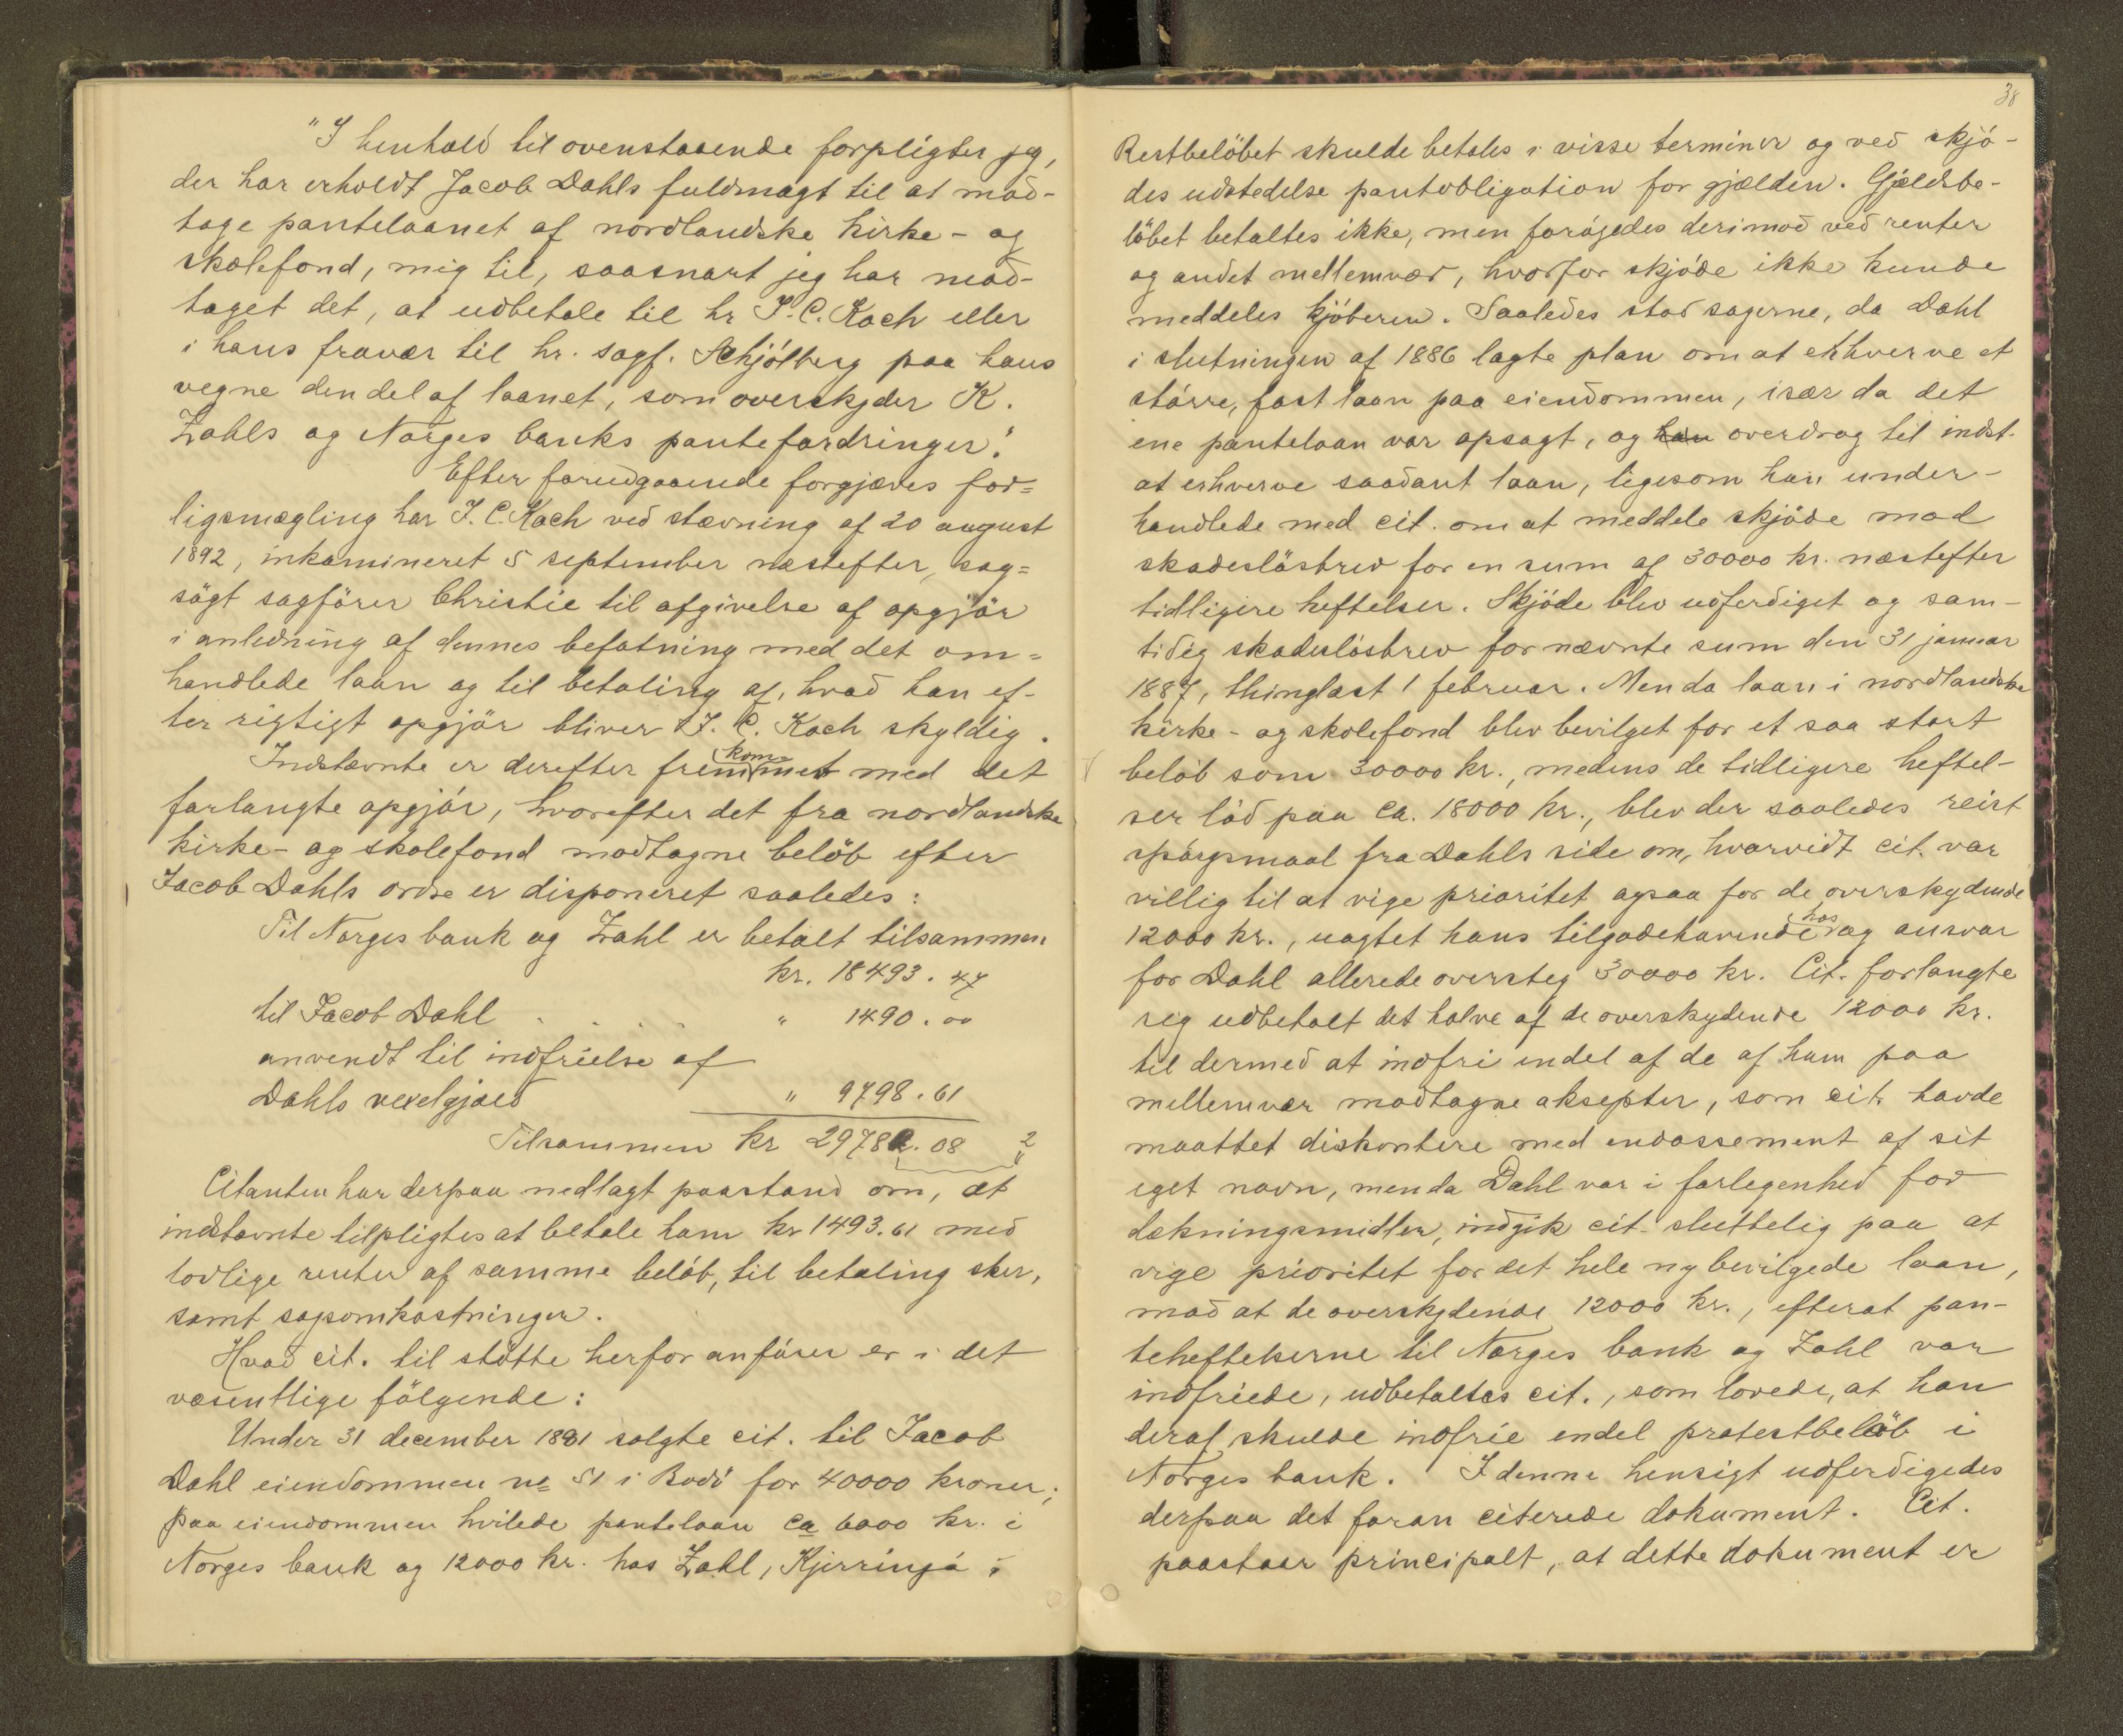 "I henhold til ovenstaaende forpligter jeg,
der har erholdt Jacob Dahls fuldmagt til at mod-
tage pantelaanet af nordlandske kirke- og
skolefond, mig til, saasnart jeg har mod-
taget det, at udbetale til hr J. C. Koch eller
i hans fravær til hr. sagf. Schjölberg paa hans
vegne den del af laanet, som overskyder K.
Zahls og Norges banks pantefordringer."
Efter forudgaaende forgjæves for=
ligsmægling har J. C. Koch ved stævning af 20 august
1892, inkamineret 5 september næstefter, sag=
sögt sagförer Christie til afgivelse af opgjör
i anledning af dennes befatning med det om=
handlede laan og til betaling af, hvad han ef-
ter rigtigt opgjör bliver J. C. Koch skyldig.
Indstævnte er derefter fremkommet med det
forlangte opgjör, hvorefter det fra nordlandske
kirke- og skolefond modtagne belöb efter
Jacob Dahls ordre er disponeret saaledes:
Til Norges bank og Zahl er betalt tilsammen
kr. 18493.47
til Jacob Dahl . . . . " 1490.00
anvendt til indfrielse af
Dahls vexelgjæld " 9798.61
Tilsammen kr 29782.08 2
Citanten har derpaa nedlagt paastand om, at
indstævnte tilpligtes at betale ham kr 1493.61 med
lovlige renter af samme belöb, til betaling sker,
samt sagsomkostninger.
Hvad cit. til stötte herfor anförer er i det
væsentlige fölgende:
Under 31 december 1881 solgte cit. til Jacob
Dahl eiendommen no 51 i Bodö for 40000 kroner;
paa eiendommen hvilede pantelaan ca 6000 kr. i
Norges bank og 12000 kr. hos Zahl, Kjerringö;
38
Restbelöbet skulde betales i visse terminer og ved skjö-
des udstedelse pantobligation for gjælden. Gjældsbe-
löbet betaltes ikke, men forögedes derimod ved renter
og andet mellemvær, hvorfor skjöde ikke kunde
meddeles kjöberen. Saaledes stod sagerne, da Dahl
i slutningen af 1886 lagte plan om at erhverve et
större, fast laan paa eiendommen, især da det
ene pantelaan var opsagt, og han overdrog til indst.
at erhverve saadant laan, ligesom han under-
handlede med cit. om at meddele skjöde mod
skadeslösbrev for en sum af 30000 kr. næstefter
tidligere heftelser. Skjöde blev udferdiget og sam-
tidig skadeslösbrev for nævnte sum den 31 januar
1887, thinglæst 1 februar. Men da laan i nordlandske
kirke- og skolefond blev bevilget for et saa stort
belöb som 30000 kr., medens de tidligere heftel-
ser löd paa ca. 18000 kr., blev der saaledes reist
spörgsmaal fra Dahls side om, hvorvidt cit. var
villig til at vige prioritet ogsaa for de overskydende
12000 kr., uagtet hans tilgodehavende hos og ansvar
for Dahl allerede oversteg 30000 kr. Cit. forlangte
sig udbetalt det halve af de overskydende 12000 kr.
til dermed at indfri endel af de af ham paa
mellemvær modtagne aksepter, som cit. havde
maattet diskontere med endossement af sit
eget navn, men da Dahl var i forlegenhed for
dækningsmidler, indgik cit. sluttelig paa at
vige prioritet for det hele ny bevilgede laan,
mod at de overskydende 12000 kr., efterat pan-
teheftelserne til Norges bank og Zahl var
indfriede, udbetaltes cit., som lovede, at han
deraf skulde indfrie endel protestbelöb i
Norges bank. I denne hensigt udferdigedes
derpaa det foran citerede dokument. Cit.
paastaar principalt, at dette dokument er